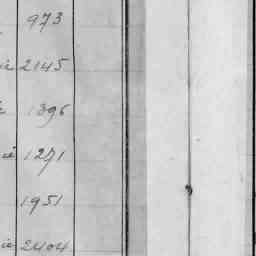 973
2145
1396
1271
1951
2404